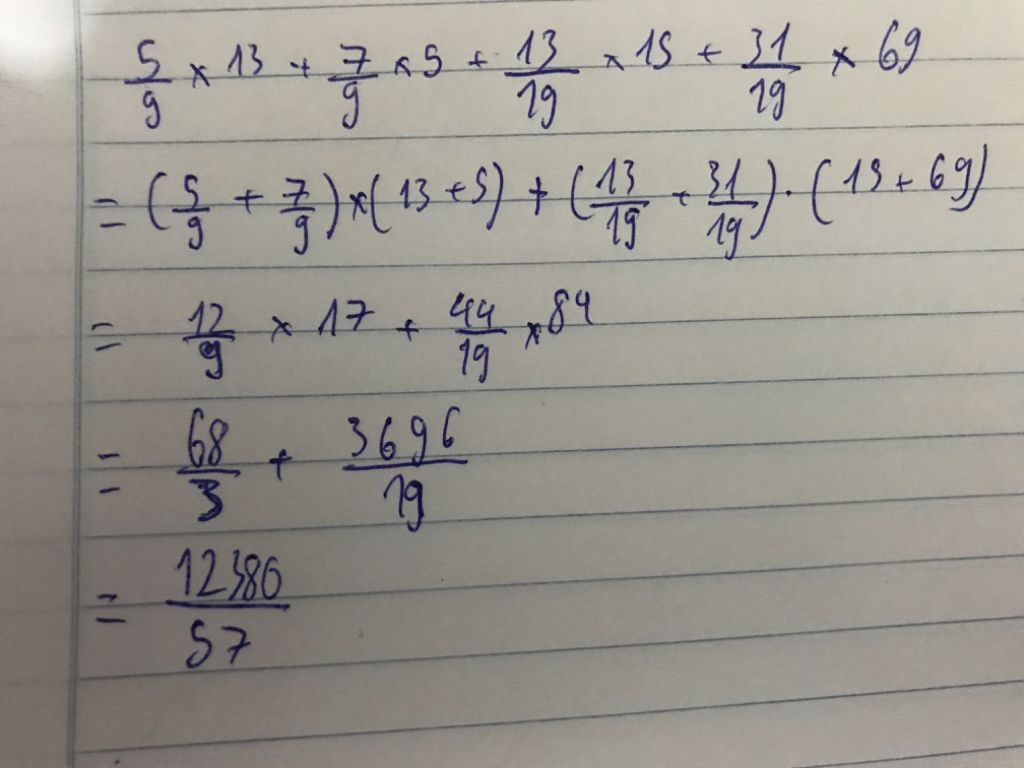 5/9 × 13 + 7/9 × 5 + 13/19 × 15 + 31/19 × 69
= (5/9 + 7/9) × (13 + 5) + (13/19 + 31/19) . (15 + 69)
= 12/9 × 17 + 44/19 × 84
= 68/3 + 3696/19
= 12380/57